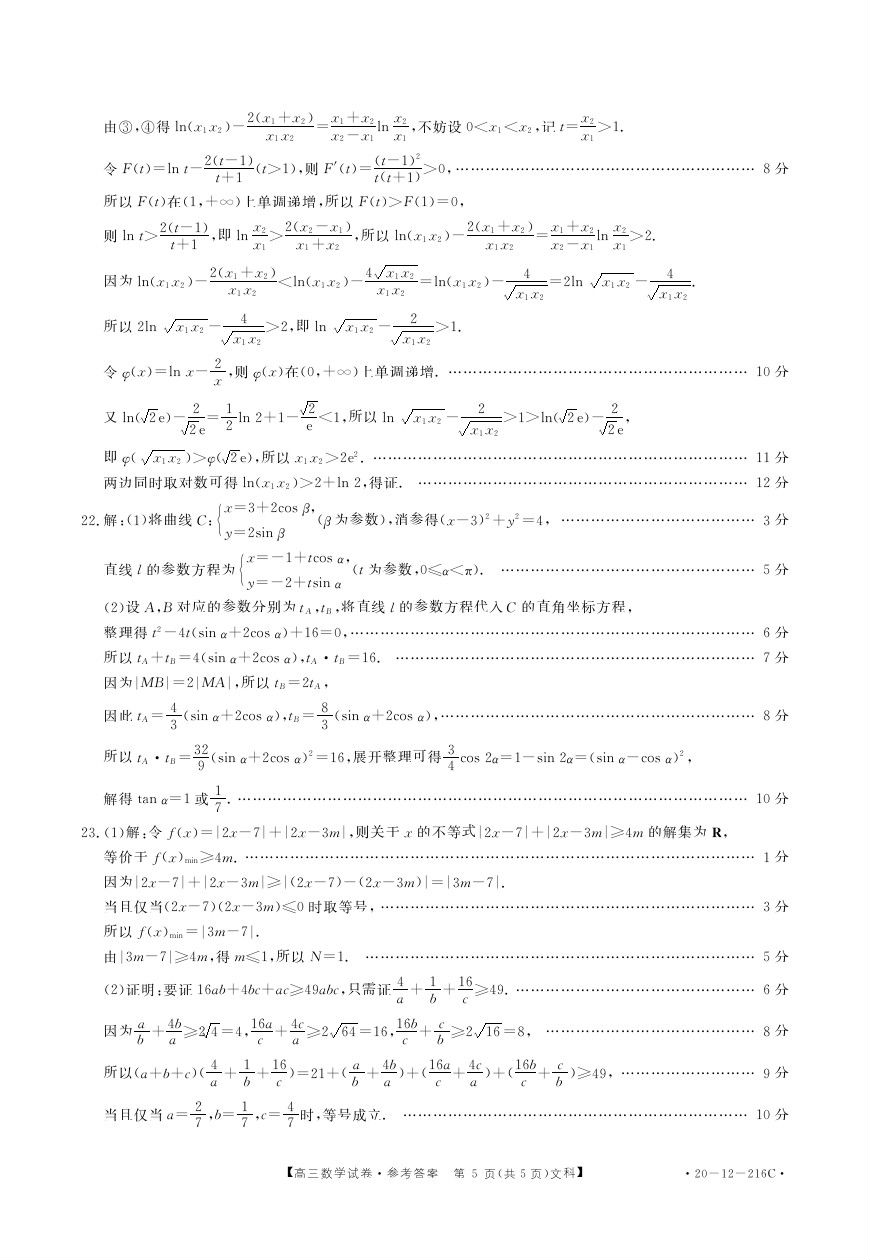 由③,④得 ln(x₁x₂)−2(x₁+x₂)/x₁x₂=(x₁+x₂)/(x₂−x₁)ln x₂/x₁,不妨设 0<x₁<x₂,记 t=x₂/x₁>1.
令 F(t)=ln t−2(t−1)/(t+1)(t>1),则 F′(t)=(t−1)²/t(t+1)>0,………………………………………………… 8 分
所以 F(t)在(1,+∞)上单调递增,所以 F(t)>F(1)=0,
则 ln t>2(t−1)/(t+1),即 ln x₂/x₁>2(x₂−x₁)/(x₁+x₂),所以 ln(x₁x₂)−2(x₁+x₂)/x₁x₂=(x₁+x₂)/(x₂−x₁)ln x₂/x₁>2.
因为 ln(x₁x₂)−2(x₁+x₂)/x₁x₂<ln(x₁x₂)−4√(x₁x₂)/x₁x₂=ln(x₁x₂)−4/√(x₁x₂)=2ln √(x₁x₂)−4/√(x₁x₂).
所以 2ln √(x₁x₂)−4/√(x₁x₂)>2,即 ln √(x₁x₂)−2/√(x₁x₂)>1.
令 φ(x)=ln x−2/x,则 φ(x)在(0,+∞)上单调递增. ………………………………………………… 10 分
又 ln(√2e)−2/√2e=1/2 ln 2+1−√2/e<1,所以 ln √(x₁x₂)−2/√(x₁x₂)>1>ln(√2e)−2/√2e,
即 φ(√(x₁x₂))>φ(√2e),所以 x₁x₂>2e². ………………………………………………… 11 分
两边同时取对数可得 ln(x₁x₂)>2+ln 2,得证. ………………………………………………… 12 分
22. 解:(1)将曲线 C:{x=3+2cos β, y=2sin β (β 为参数),消参得(x−3)²+y²=4, ………………………………… 3 分
直线 l 的参数方程为{x=−1+tcos α, y=−2+tsin α (t 为参数,0≤α<π). ………………………………………… 5 分
(2)设 A,B 对应的参数分别为 t_A,t_B,将直线 l 的参数方程代入 C 的直角坐标方程,
整理得 t²−4t(sin α+2cos α)+16=0,………………………………………………… 6 分
所以 t_A+t_B=4(sin α+2cos α),t_A·t_B=16. ………………………………………………… 7 分
因为|MB|=2|MA|,所以 t_B=2t_A,
因此 t_A=4/3(sin α+2cos α),t_B=8/3(sin α+2cos α),………………………………………………… 8 分
所以 t_A·t_B=32/9(sin α+2cos α)²=16,展开整理可得3/4cos 2α=1−sin 2α=(sin α−cos α)²,
解得 tan α=1 或1/7. ………………………………………………… 10 分
23. (1)解:令 f(x)=|2x−7|+|2x−3m|,则关于 x 的不等式|2x−7|+|2x−3m|≥4m 的解集为 R,
等价于 f(x)min≥4m. ………………………………………………… 1 分
因为|2x−7|+|2x−3m|≥|(2x−7)−(2x−3m)|=|3m−7|.
当且仅当(2x−7)(2x−3m)≤0 时取等号,………………………………………………… 3 分
所以 f(x)min=|3m−7|.
由|3m−7|≥4m,得 m≤1,所以 N=1. ………………………………………………… 5 分
(2)证明:要证 16ab+4bc+ac≥49abc,只需证4/a+1/b+16/c≥49. ………………………………… 6 分
因为a/b+4b/a≥2√4=4,16a/c+4c/a≥2√64=16,16b/c+c/b≥2√16=8, ………………………………… 8 分
所以(a+b+c)(4/a+1/b+16/c)=21+(a/b+4b/a)+(16a/c+4c/a)+(16b/c+c/b)≥49, ……………………… 9 分
当且仅当 a=2/7,b=1/7,c=4/7时,等号成立. ………………………………………………… 10 分
【高三数学试卷·参考答案 第 5 页(共 5 页)文科】 ·20−12−216C·